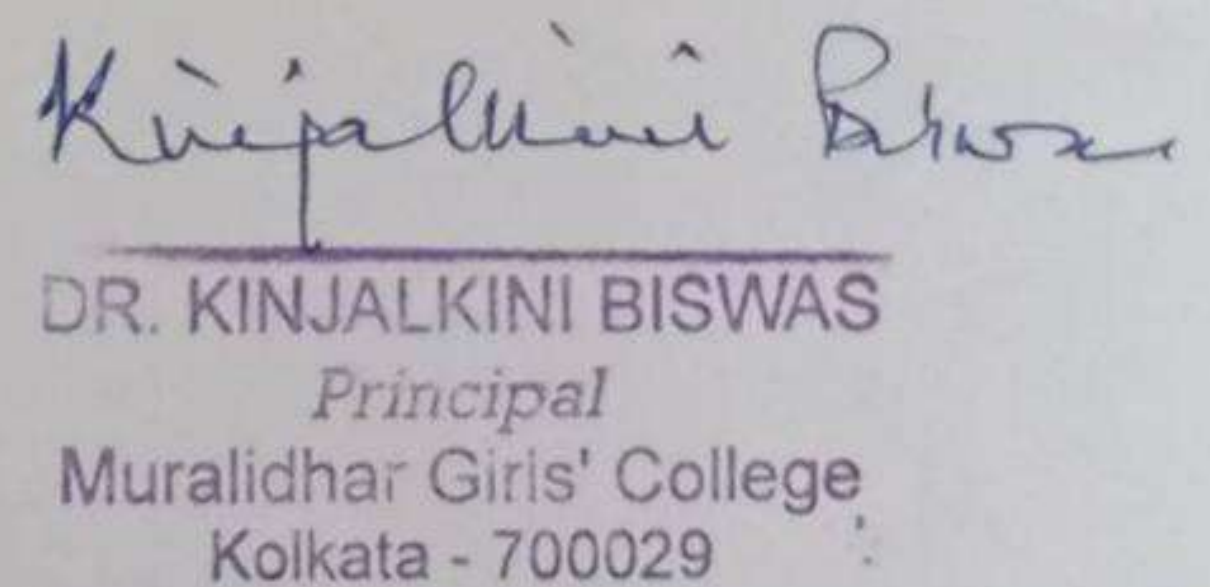 Kinjalkini Biswas
DR. KINJALKINI BISWAS
Principal
Muralidhar Girls' College
Kolkata - 700029